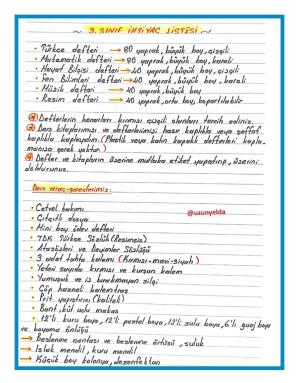 ~ 3. SINIF İHTİYAÇ LİSTESİ ~
• Türkçe defteri → 80 yaprak, büyük boy, çizgili
• Matematik defteri → 80 yaprak, büyük boy, kareli
• Hayat Bilgisi defteri → 40 yaprak, büyük boy, çizgili
• Fen Bilimleri defteri → 40 yaprak, büyük boy, kareli
• Müzik defteri → 40 yaprak, büyük boy
• Resim defteri → 40 yaprak, orta boy, kopartılabilir
Defterlerin kenarları kırmızı çizgili olanları tercih ediniz.
Ders kitaplarımızı ve defterlerimizi hazır kaplıkla veya şeffaf
kaplıkla kaplayalım. (Plastik veya kalın kapaklı defterleri kapla-
manıza gerek yoktur.)
Defter ve kitapların üzerine mutlaka etiket yapıştırıp, üzerini
doldurunuz.
Ders araç-gereçlerimiz:
@uzunyelda
• Cetvel takımı
• Çıtçıtlı dosya
• Mini boy ödev defteri
• TDK Türkçe Sözlük (Resimsiz)
• Atasözleri ve Deyimler Sözlüğü
• 3 adet tahta kalemi (Kırmızı-mavi-siyah)
• Yeteri sayıda kırmızı ve kurşun kalem
• Yumuşak ve iz bırakmayan silgi
• Çöp hazneli kalemtıraş
• Prit yapıştırıcı (kaliteli)
• Bant, küt uçlu makas
• 12'li kuru boya, 12'li pastel boya, 12'li sulu boya, 6'lı guaj boya
ve boyama önlüğü
→ Beslenme çantası ve beslenme örtüsü, suluk
→ Islak mendil, kuru mendil
→ Küçük boy kolonya, dezenfektan